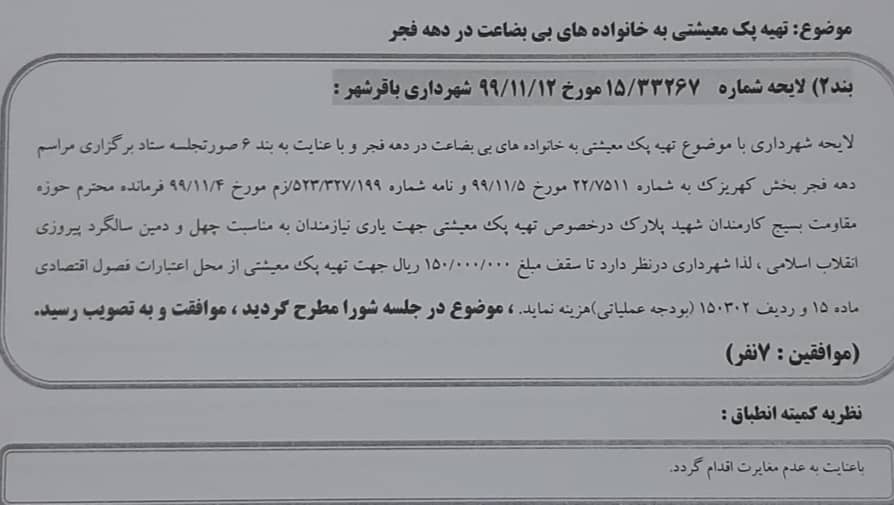 موضوع: تهیه پک معیشتی به خانواده های بی بضاعت در دهه فجر
بند۲) لایحه شماره ۱۵/۳۳۲۶۷ مورخ ۹۹/۱۱/۱۲ شهرداری باقرشهر :
لایحه شهرداری با موضوع تهیه پک معیشتی به خانواده های بی بضاعت در دهه فجر و با عنایت به بند ۶ صورتجلسه ستاد برگزاری مراسم
دهه فجر بخش کهریزک به شماره ۲۲/۷۵۱۱ مورخ ۹۹/۱۱/۵ و نامه شماره ۵۲۳/۳۲۷/۱۹۹/زم مورخ ۹۹/۱۱/۴ فرمانده محترم حوزه
مقاومت بسیج کارمندان شهید پلارک درخصوص تهیه پک معیشتی جهت یاری نیازمندان به مناسبت چهل و دمین سالگرد پیروزی
انقلاب اسلامی ، لذا شهرداری درنظر دارد تا سقف مبلغ ۱۵۰/۰۰۰/۰۰۰ ریال جهت تهیه پک معیشتی از محل اعتبارات فصول اقتصادی
ماده ۱۵ و ردیف ۱۵۰۳۰۲ (بودجه عملیاتی)هزینه نماید. ، موضوع در جلسه شورا مطرح گردید ، موافقت و به تصویب رسید.
(موافقین : ۷نفر)
نظریه کمیته انطباق :
باعنایت به عدم مغایرت اقدام گردد.